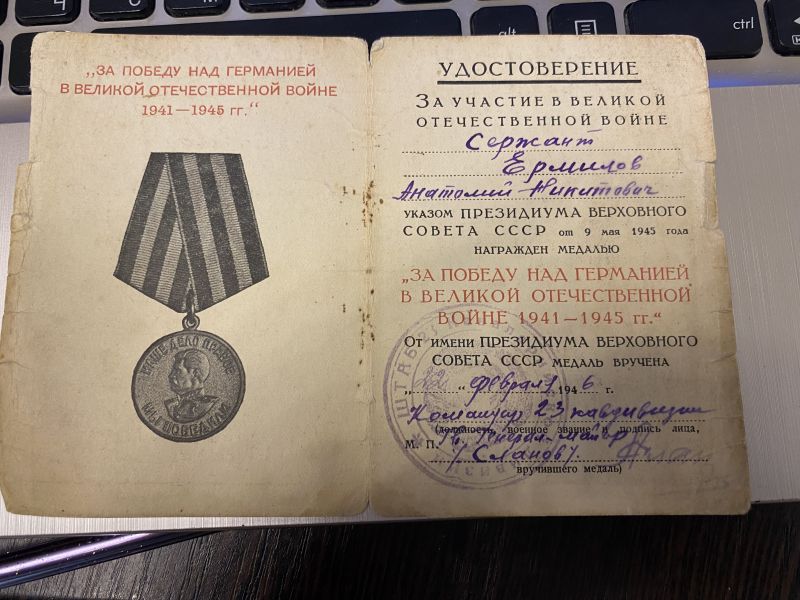 „ЗА ПОБЕДУ НАД ГЕРМАНИЕЙ
В ВЕЛИКОЙ ОТЕЧЕСТВЕННОЙ ВОЙНЕ
1941—1945 гг.“
НАШЕ ДЕЛО ПРАВОЕ
МЫ ПОБЕДИЛИ
УДОСТОВЕРЕНИЕ
ЗА УЧАСТИЕ В ВЕЛИКОЙ
ОТЕЧЕСТВЕННОЙ ВОЙНЕ
Сержант
Ермилов
Анатолий Никитович
УКАЗОМ ПРЕЗИДИУМА ВЕРХОВНОГО
СОВЕТА СССР от 9 мая 1945 года
НАГРАЖДЕН МЕДАЛЬЮ
„ЗА ПОБЕДУ НАД ГЕРМАНИЕЙ
В ВЕЛИКОЙ ОТЕЧЕСТВЕННОЙ
ВОЙНЕ 1941—1945 гг.“
ОТ ИМЕНИ ПРЕЗИДИУМА ВЕРХОВНОГО
СОВЕТА СССР МЕДАЛЬ ВРУЧЕНА
„22“ февраля 1946 г.
Командир 23 кавдивизии
(должность, военное звание и подпись лица,
М. П. Гв. Генерал-Майор
/Сланов/.
вручившего медаль)
ШТАБ
ctrl